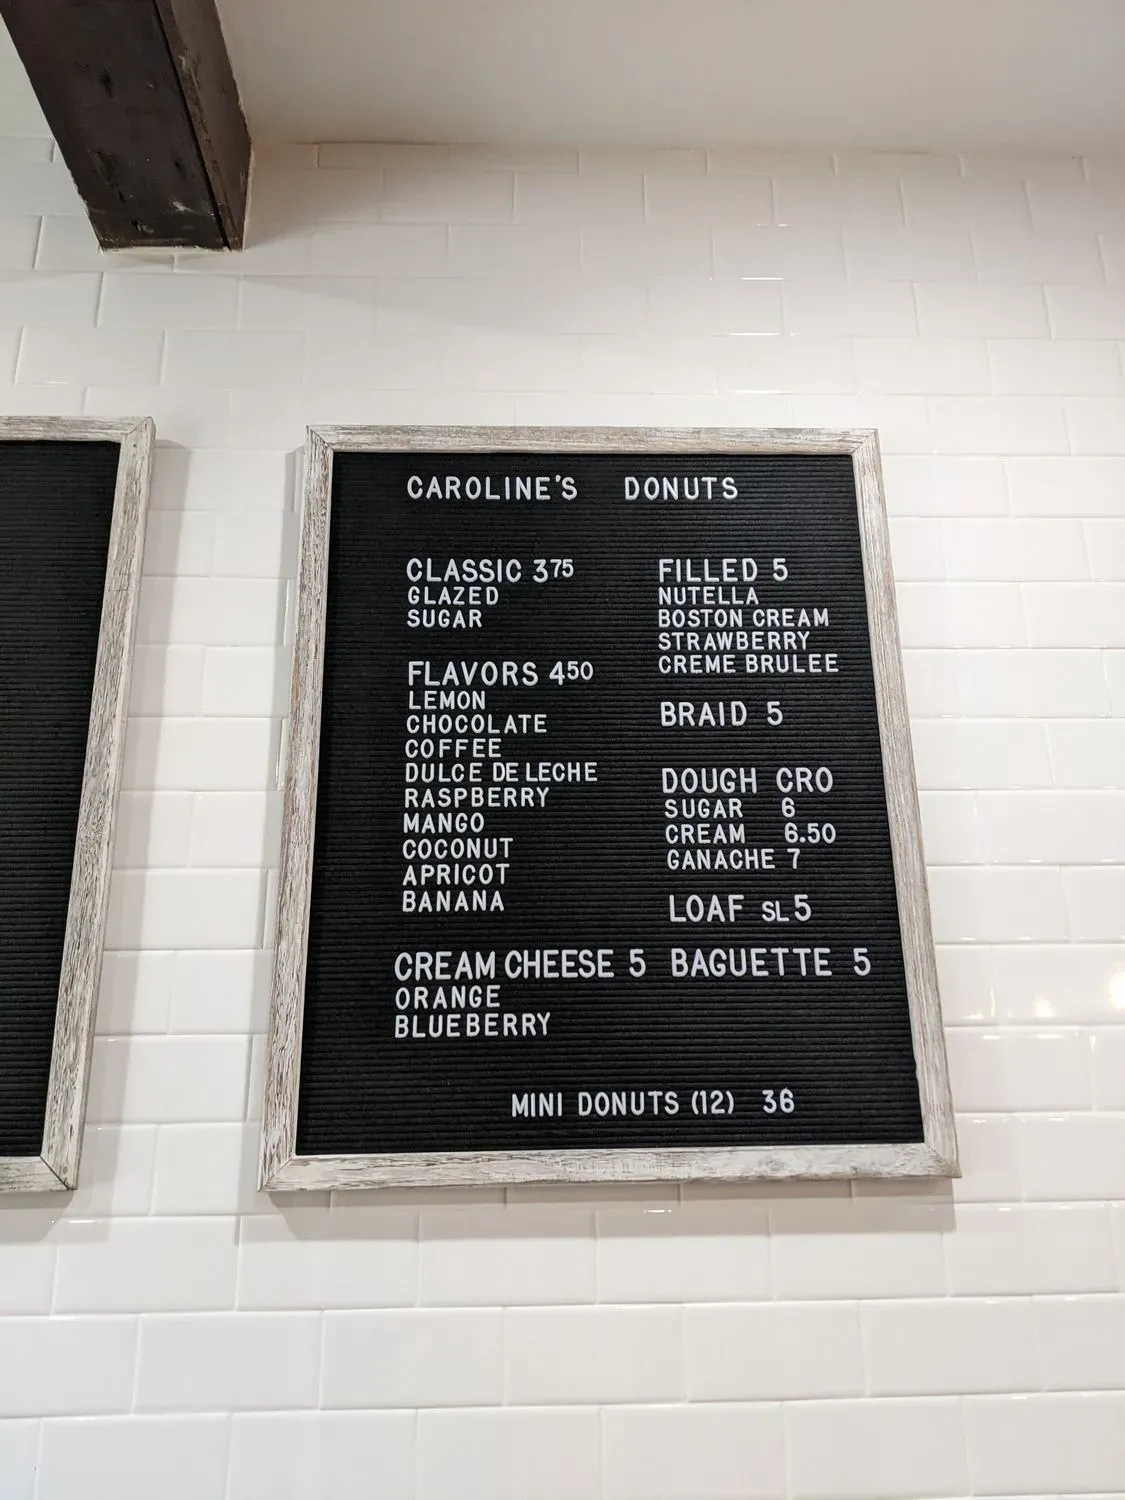 CAROLINE'S DONUTS
CLASSIC 375
GLAZED
SUGAR
FLAVORS 450
LEMON
CHOCOLATE
COFFEE
DULCE DE LECHE
RASPBERRY
MANGO
COCONUT
APRICOT
BANANA
CREAM CHEESE 5
ORANGE
BLUEBERRY
FILLED 5
NUTELLA
BOSTON CREAM
STRAWBERRY
CREME BRULEE
BRAID 5
DOUGH CRO
SUGAR 6
CREAM 6.50
GANACHE 7
LOAF SL 5
BAGUETTE 5
MINI DONUTS (12) 36